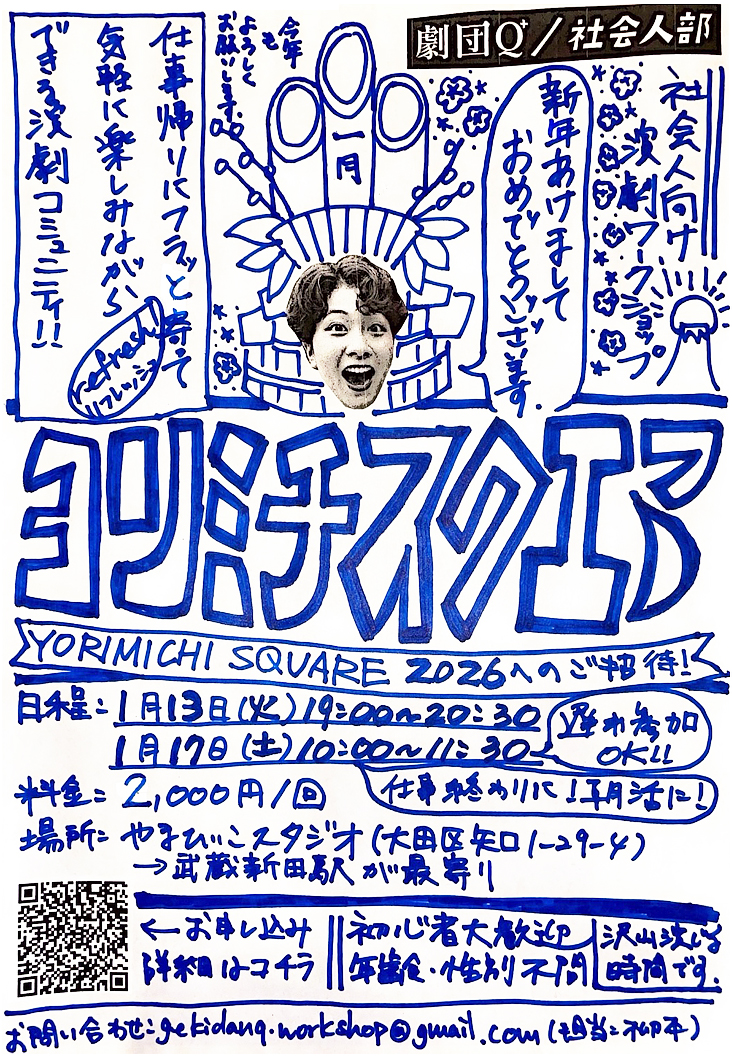 劇団Q⁺／社会人部
社会人向け
演劇ワークショップ
新年あけまして
おめでとうございます。
一月
今年
も
よろしく
お願いします。
仕事帰りにフラッと寄って
気軽に楽しみながら、
できる演劇コミュニティ!!
refresh!
リフレッシュ
ヨリミチスクエア
YORIMICHI SQUARE 2026へのご招待!
日程:1月13日(火)19:00~20:30
1月17日(土)10:00~11:30
遅れ参加
OK!!
料金:2,000円/回
仕事終わりに!朝活に!
場所:やまびこスタジオ(大田区矢口1-29-4)
→武蔵新田駅が最寄り
←お申し込み
詳細はコチラ
初心者大歓迎
年齢・性別不問
沢山演じる
時間です。
お問い合わせ:gekidanq.workshop@gmail.com(担当:柳本)